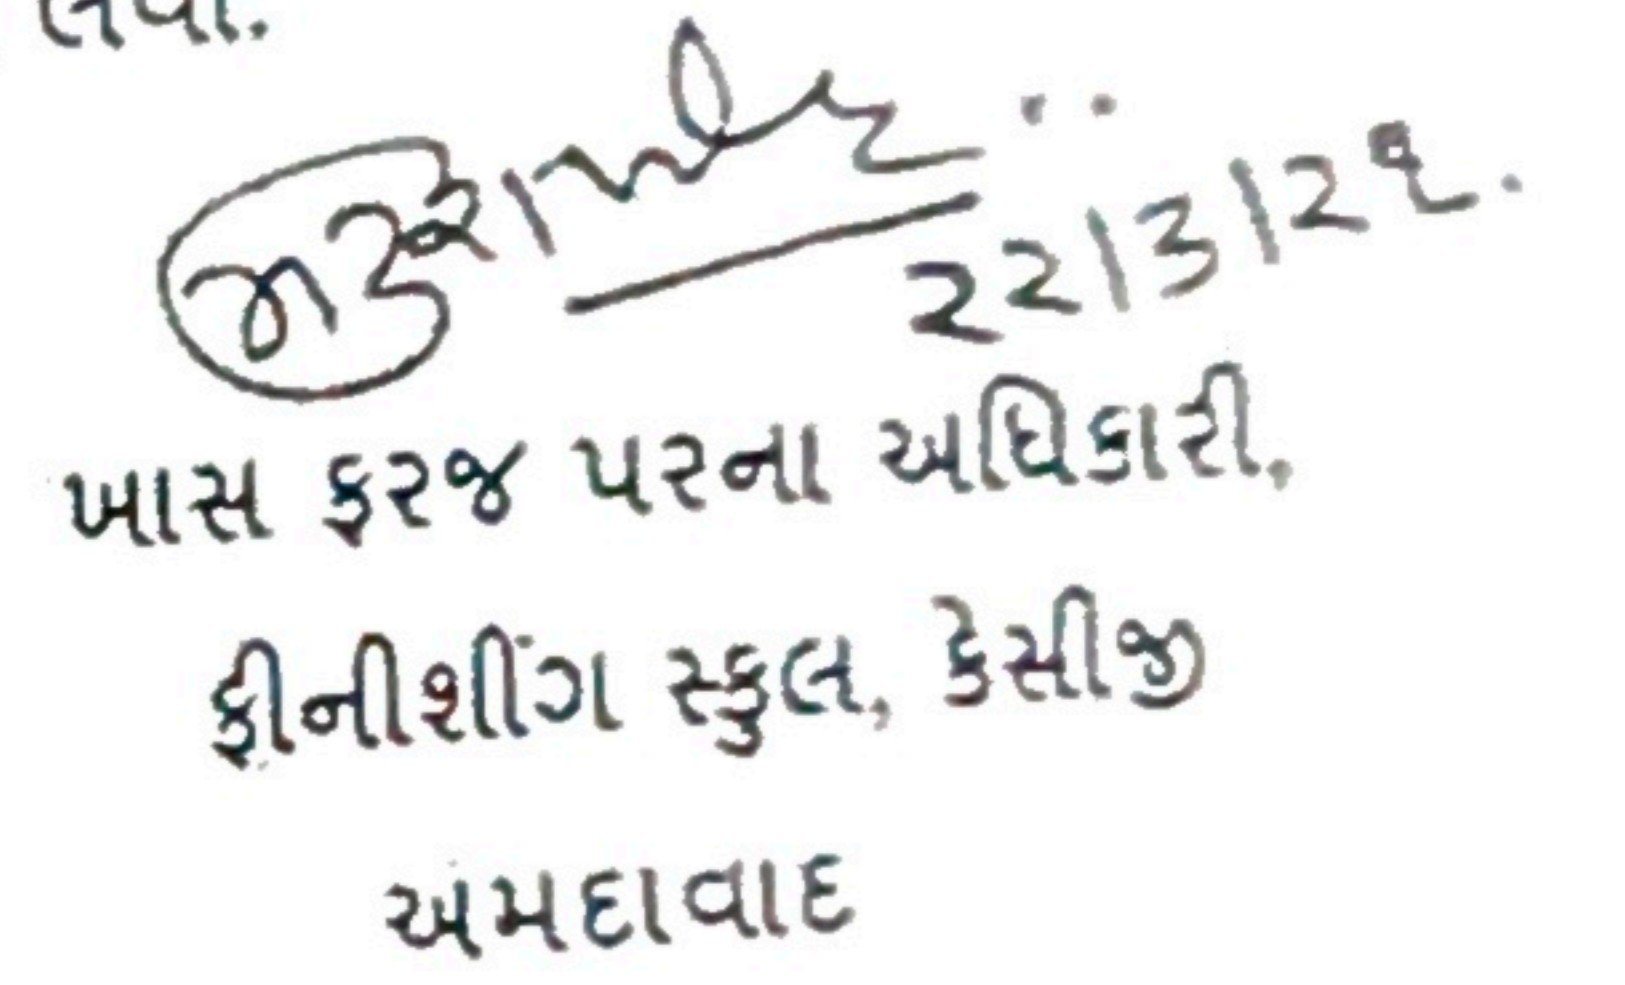 લેવા.
૨૨/૩/૨૧.
ખાસ ફરજ પરના અધિકારી,
ફીનીશીંગ સ્કુલ, કેસીજી
અમદાવાદ